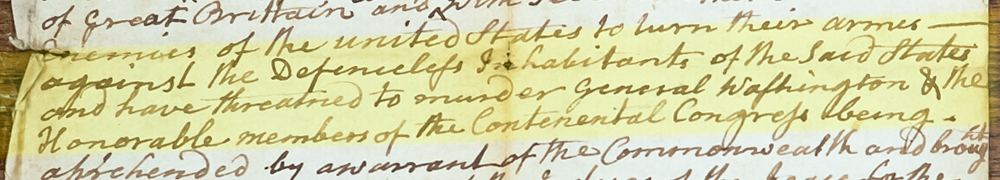 of Great Brittain and
Enemies of the united States to turn their armes —
against the Defenceless Inhabitants of the Said States
and have threatned to murder General Washington & the
Honorable members of the Contenental Congress being
aphrehended by a warrant of the Commonwealth and brought
of the